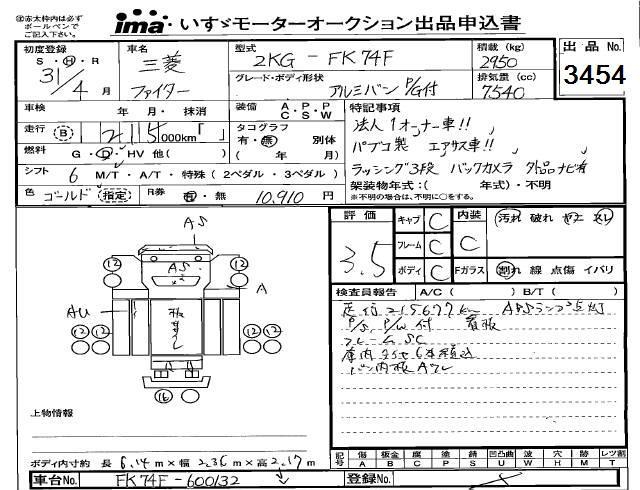 ※赤太枠内は必ず
ボールペンで
ご記入下さい。
ima いすゞモーターオークション出品申込書
初度登録 車名 型式 積載(kg) 出品No.
S・H・R 31/4月 三菱 ファイター 2KG-FK74F 2950 3454
グレード・ボディ形状 アルミバン P/G付 排気量(cc) 7540
車検 年 月・抹消 装備 A・P・P C・S・W 特記事項
走行 B 215,000km「 」 タコグラフ 有・無 別体 法人1オーナー車!!
燃料 G・D・HV 他( ) ( 年 月) パブコ製 エアサス車!!
シフト 6 M/T・A/T・特殊(2ペダル・3ペダル) ラッシング3段 バックカメラ 外品ナビ有
色 ゴールド 指定 R券 有・無 10,910円 架装物年式:( 年式)・不明
※不明の場合は、不明に○をする。
評価 3.5 キャブ C 内装 C 汚れ 破れ
フレーム C
ボディ C Fガラス 割れ 線 点傷 イバリ
検査員報告 A/C( ) B/T( )
走行 215677km ABSランプ点灯
P/S, P/W付 看板
フレームSC
庫内
AS
AS
A
AU
12 12
12 12 12 12
16
上物情報
ボディ内寸約 長6.14m×幅2.36m×高2.17m
記号 傷 A 板金 B 腐 C 塗 P 錆 S 凹凸曲 U 波 W 穴 H 跡 M レツ割 T
車台No. FK74F-600132 登録No.